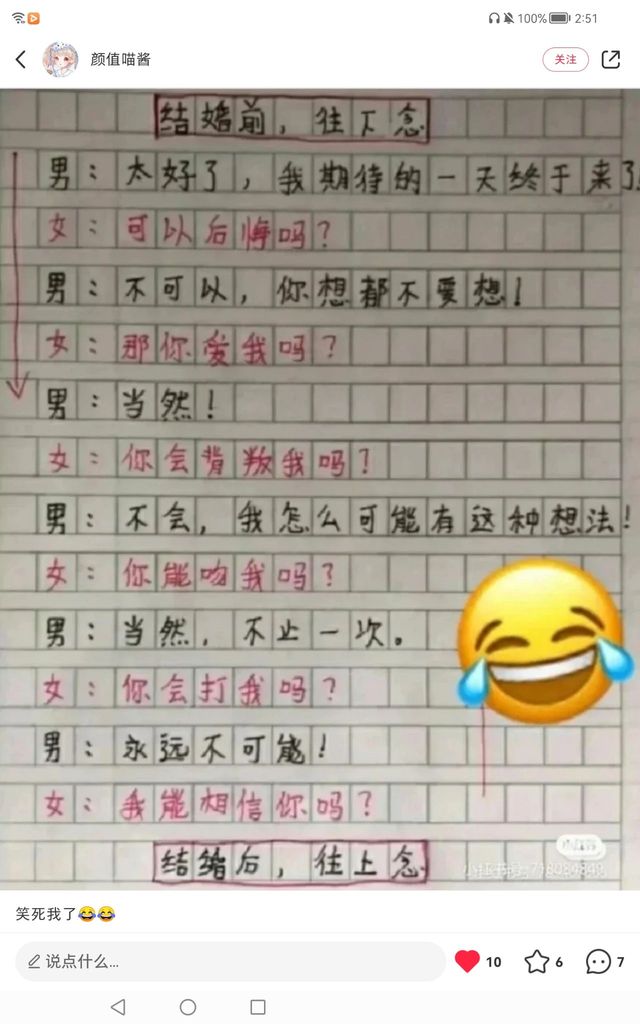 100% 2:51
颜值喵酱
关注
结婚前，往下念
男：太好了，我期待的一天终于来了!
女：可以后悔吗？
男：不可以，你想都不要想！
女：那你爱我吗？
男：当然！
女：你会背叛我吗？
男：不会，我怎么可能有这种想法！
女：你能吻我吗？
男：当然，不止一次。
女：你会打我吗？
男：永远不可能！
女：我能相信你吗？
结婚后，往上念
小红书
笑死我了😂😂
说点什么...
10
6
7